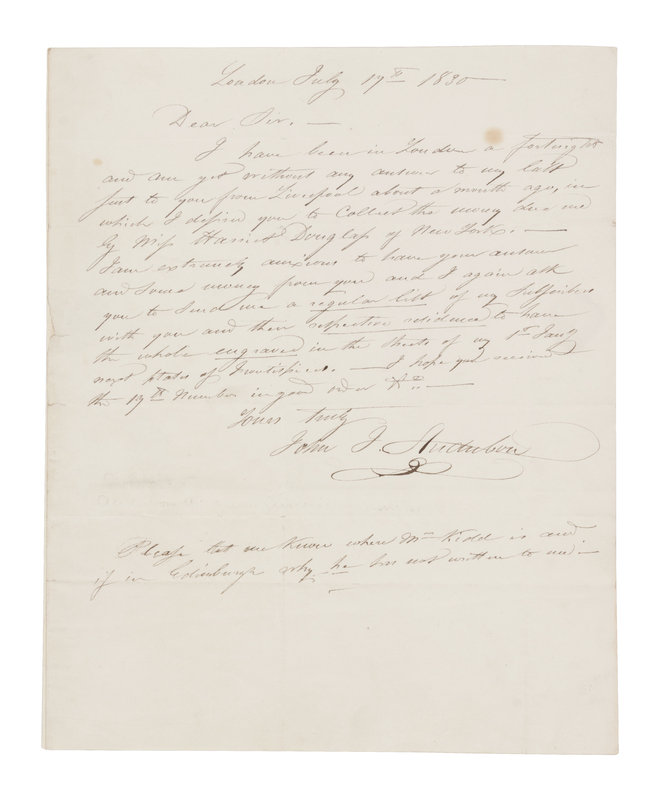 London July 17th 1830 —
Dear Sir. —
I have been in London a fortnight
and am yet without any answer to my last
sent to you from Liverpool about a month ago, in
which I desired you to Collect the money due me
by Miss Harriet Douglass of New York. —
I am extremely anxious to have your answer
and some money from you and I again ask
you to Send me a regular list of my Subscribers
with you and their respective residence to have
the whole engraved in the Sheets of my 1st Jany
next plates of Frontispiece. — I hope you received
the 17th Number in good order &c. —
Yours truly
John J. Audubon
Please let me know where Mr Kidd is and
if in Edinburgh why he has not written to me. —